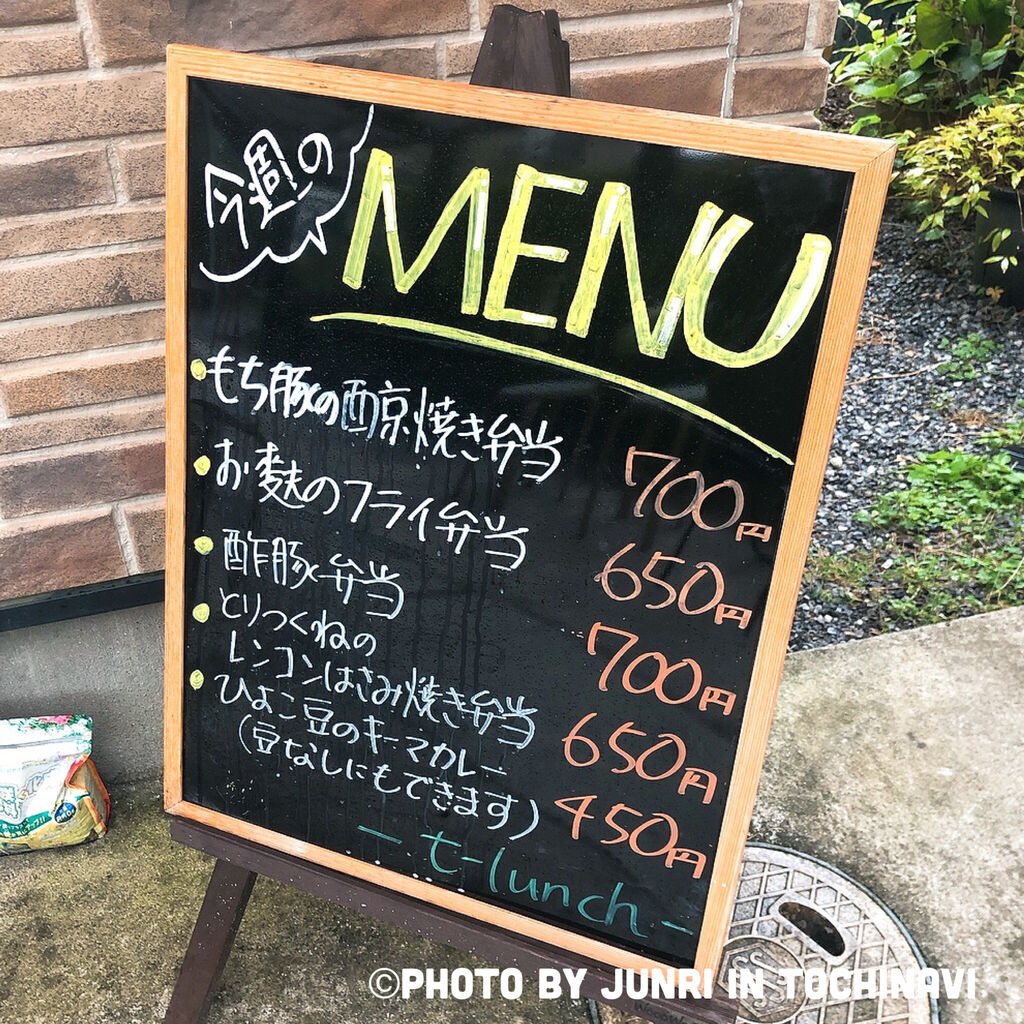 今週の
MENU
もち豚の酉京焼き弁当 700円
お麩のフライ弁当 650円
酢豚弁当 700円
とりつくねの
レンコンはさみ焼き弁当 650円
ひよこ豆のキーマカレー 450円
(豆なしにもできます)
- t-lunch -
©PHOTO BY JUNRI IN TOCHINAVI